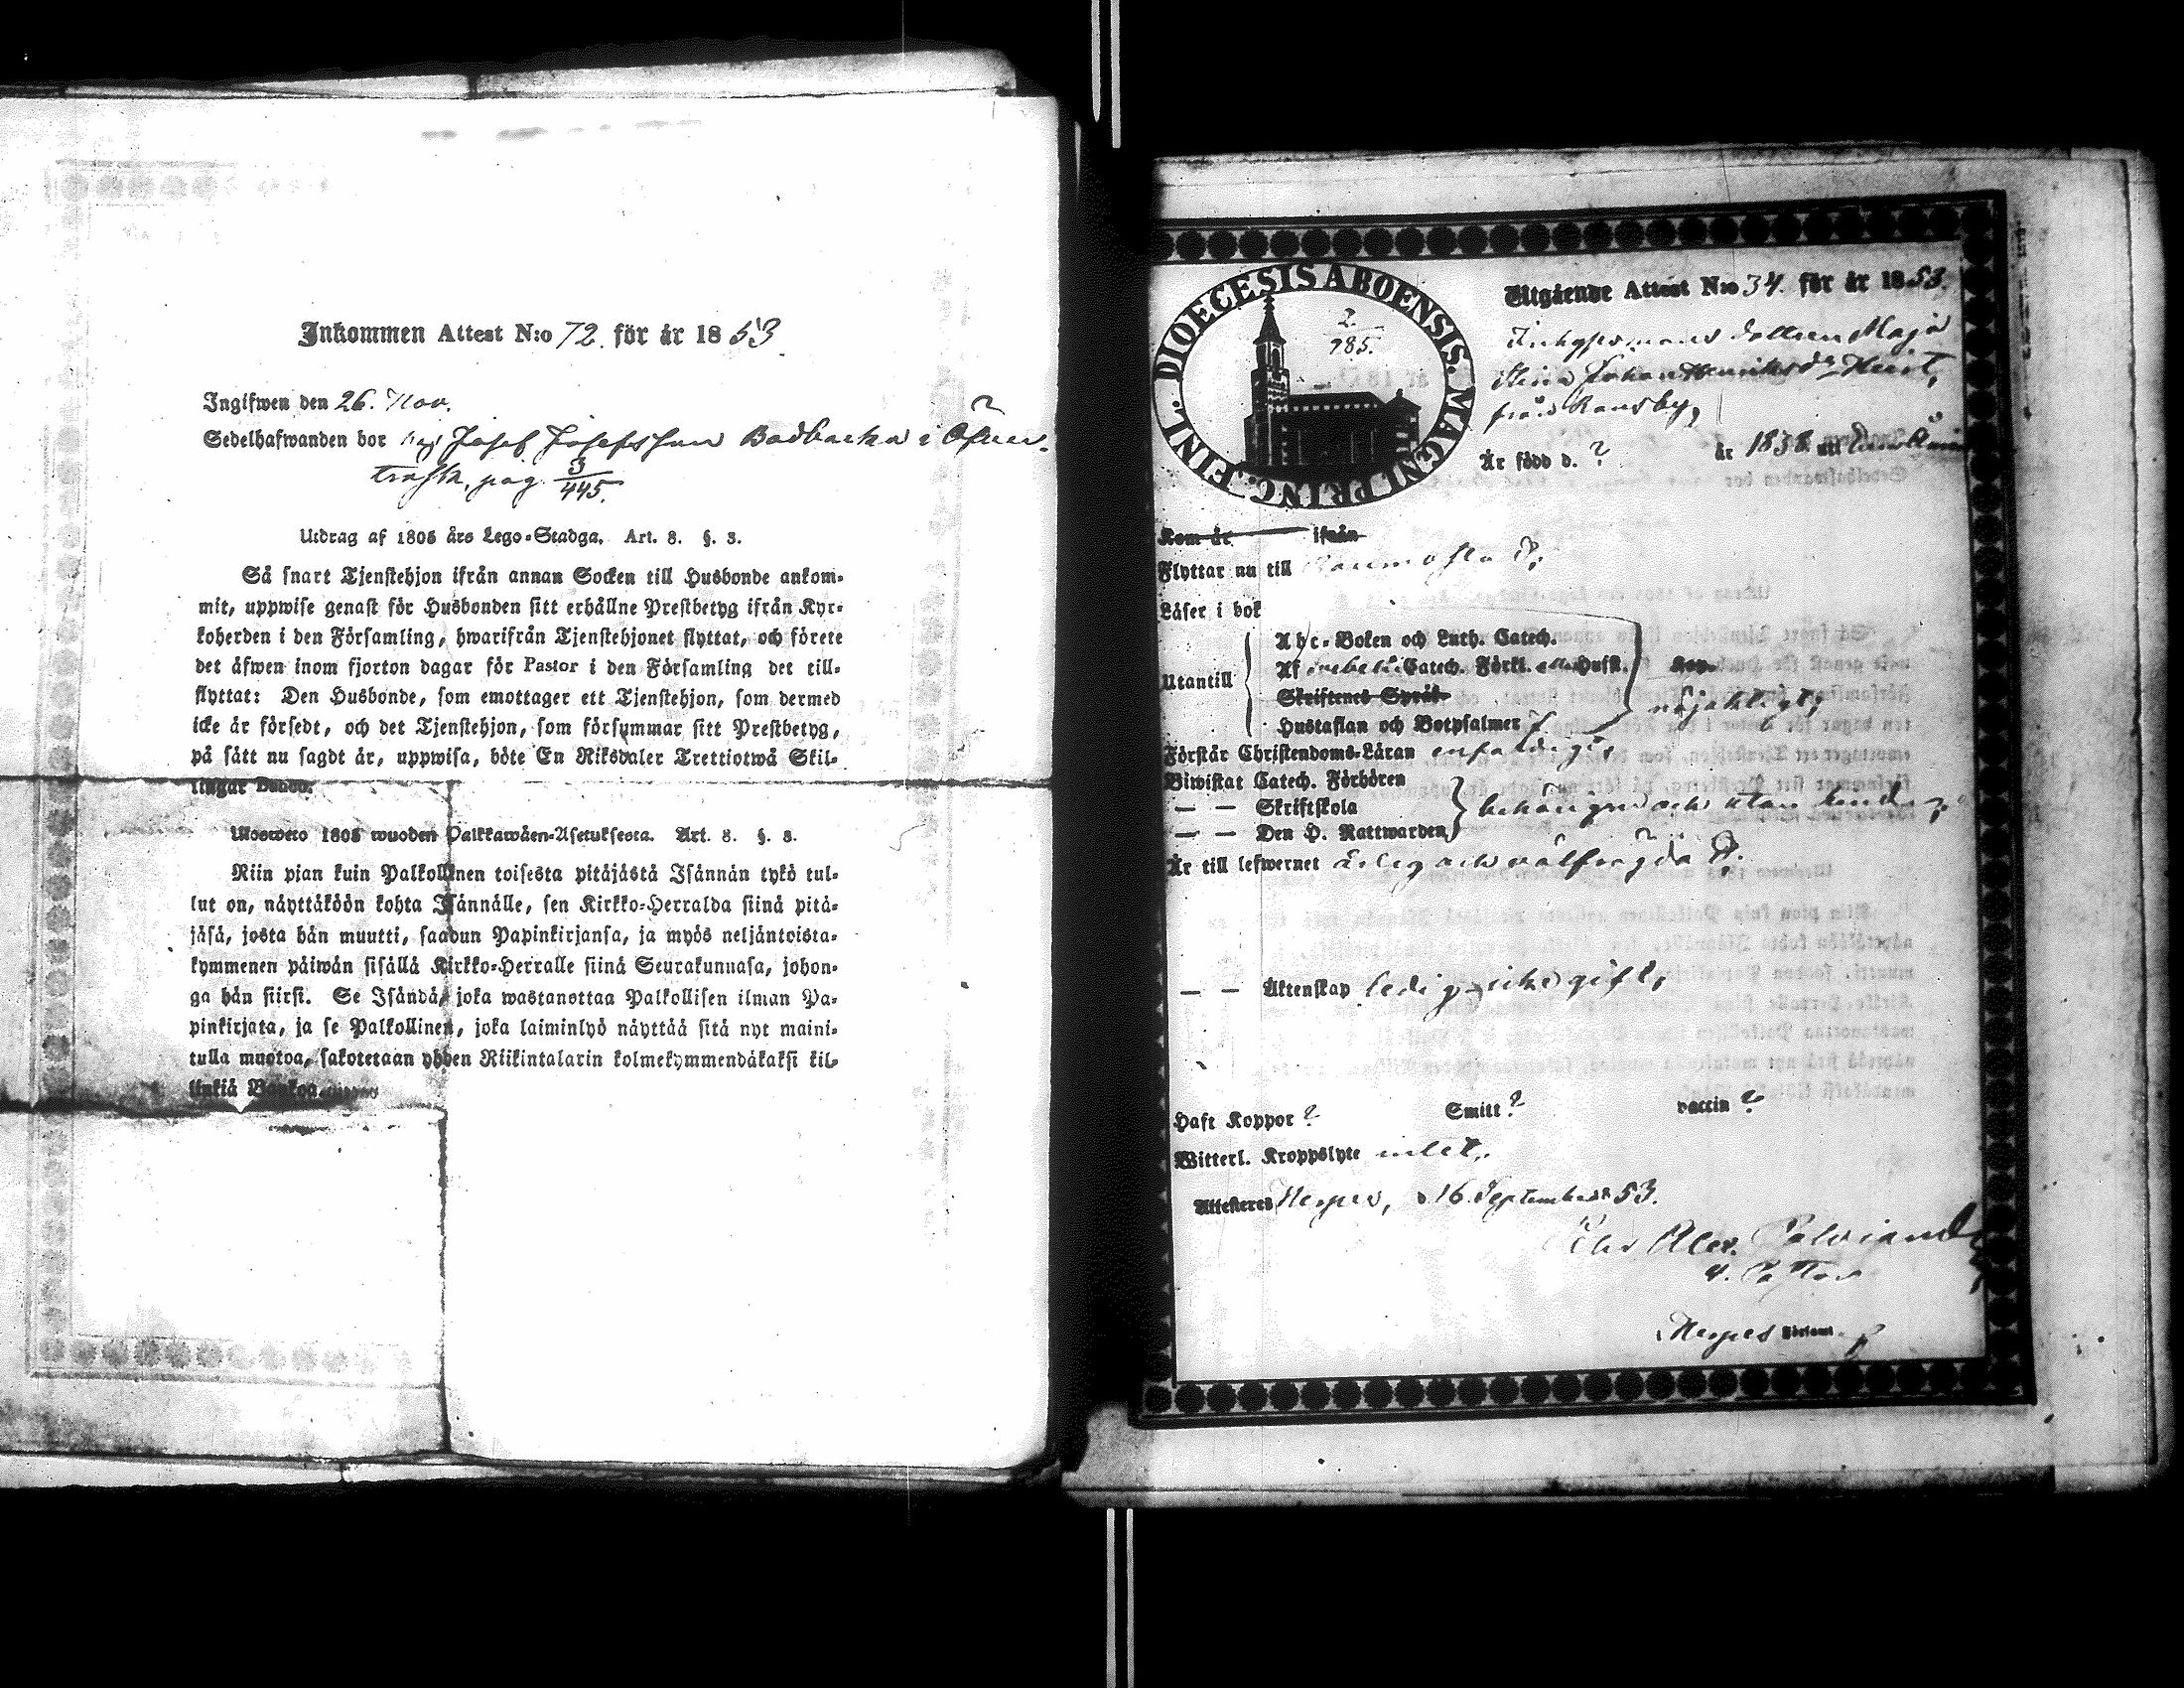 Inkommen Attest N:o 72. för år 1853
Ingifwen den 26. Nov.
Sedelhafwanden bor hos Josef Josefsson Badbacka i Öfver-
träsk, pag. 3/445.
Utdrag af 1805 års Lego-Stadga. Art. 8. §. 3.
Så snart Tjenstehjon ifrån annan Socken till Husbonde ankom-
mit, uppwise genast för Husbonden sitt erhållne Prestbetyg ifrån Kyr-
koherden i den Församling, hwarifrån Tjenstehjonet flyttat, och förete
det äfwen inom fjorton dagar för Pastor i den Församling det till-
flyttat: Den Husbonde, som emottager ett Tjenstehjon, som dermed
icke är försedt, och det Tjenstehjon, som försummar sitt Prestbetyg,
på sätt nu sagdt är, uppwisa, böte En Riksdaler Trettiotwå Skil-
lingar Banco.
Ulosweto 1805 wuoden Palkkawäen-Asetuksesta. Art. 8. §. 3.
Niin pian kuin Palkollinen toisesta pitäjästä Isännän tykö tul-
lut on, näyttäköön kohta Isännälle, sen Kirkko-Herralda siinä pitä-
jäsä, josta hän muutti, saadun Papinkirjansa, ja myös neljäntoista-
kymmenen päiwän sisällä Kirkko-Herralle siinä Seurakunnasa, johon-
ga hän siirsi. Se Isändä, joka wastanottaa Palkollisen ilman Pa-
pinkirjata, ja se Palkollinen, joka laiminlyö näyttää sitä nyt maini-
tulla muotoa, sakotetaan yhden Riikintalarin kolmekymmendäkaksi kil-
linkiä Bankoa.
DIOECESIS ABOENSIS. MAGNI PRINC. FINL.
2/785.
Utgående Attest N:o 34. för år 1853.
Maja
Stina Johan Henriksdr
från Ransby,
Är född d. ? år 1838
Kom år ifrån
Flyttar nu till
Läser i bok
Utantill
Abc-Boken och Luth. Catech.
Af Catech. Förkl. Husfl.
Skriftenes Språk
Hustaflan och Botpsalmer
nöjaktigt,
Förstår Christendoms-Läran enfaldigt,
Biwistat Catech. Förhören
— — Skriftskola
— — Den H. Nattwarden
behörigen och utan
Är till lefwernet ärlig och välfrägdad.
— — Äktenskap ledig gift,
Haft Koppor ? Smitt ? vaccin ?
Witterl. Kroppslyte intet.
Attesteres d. 16 September 53.
Alex.
v. Pastor
Församl.